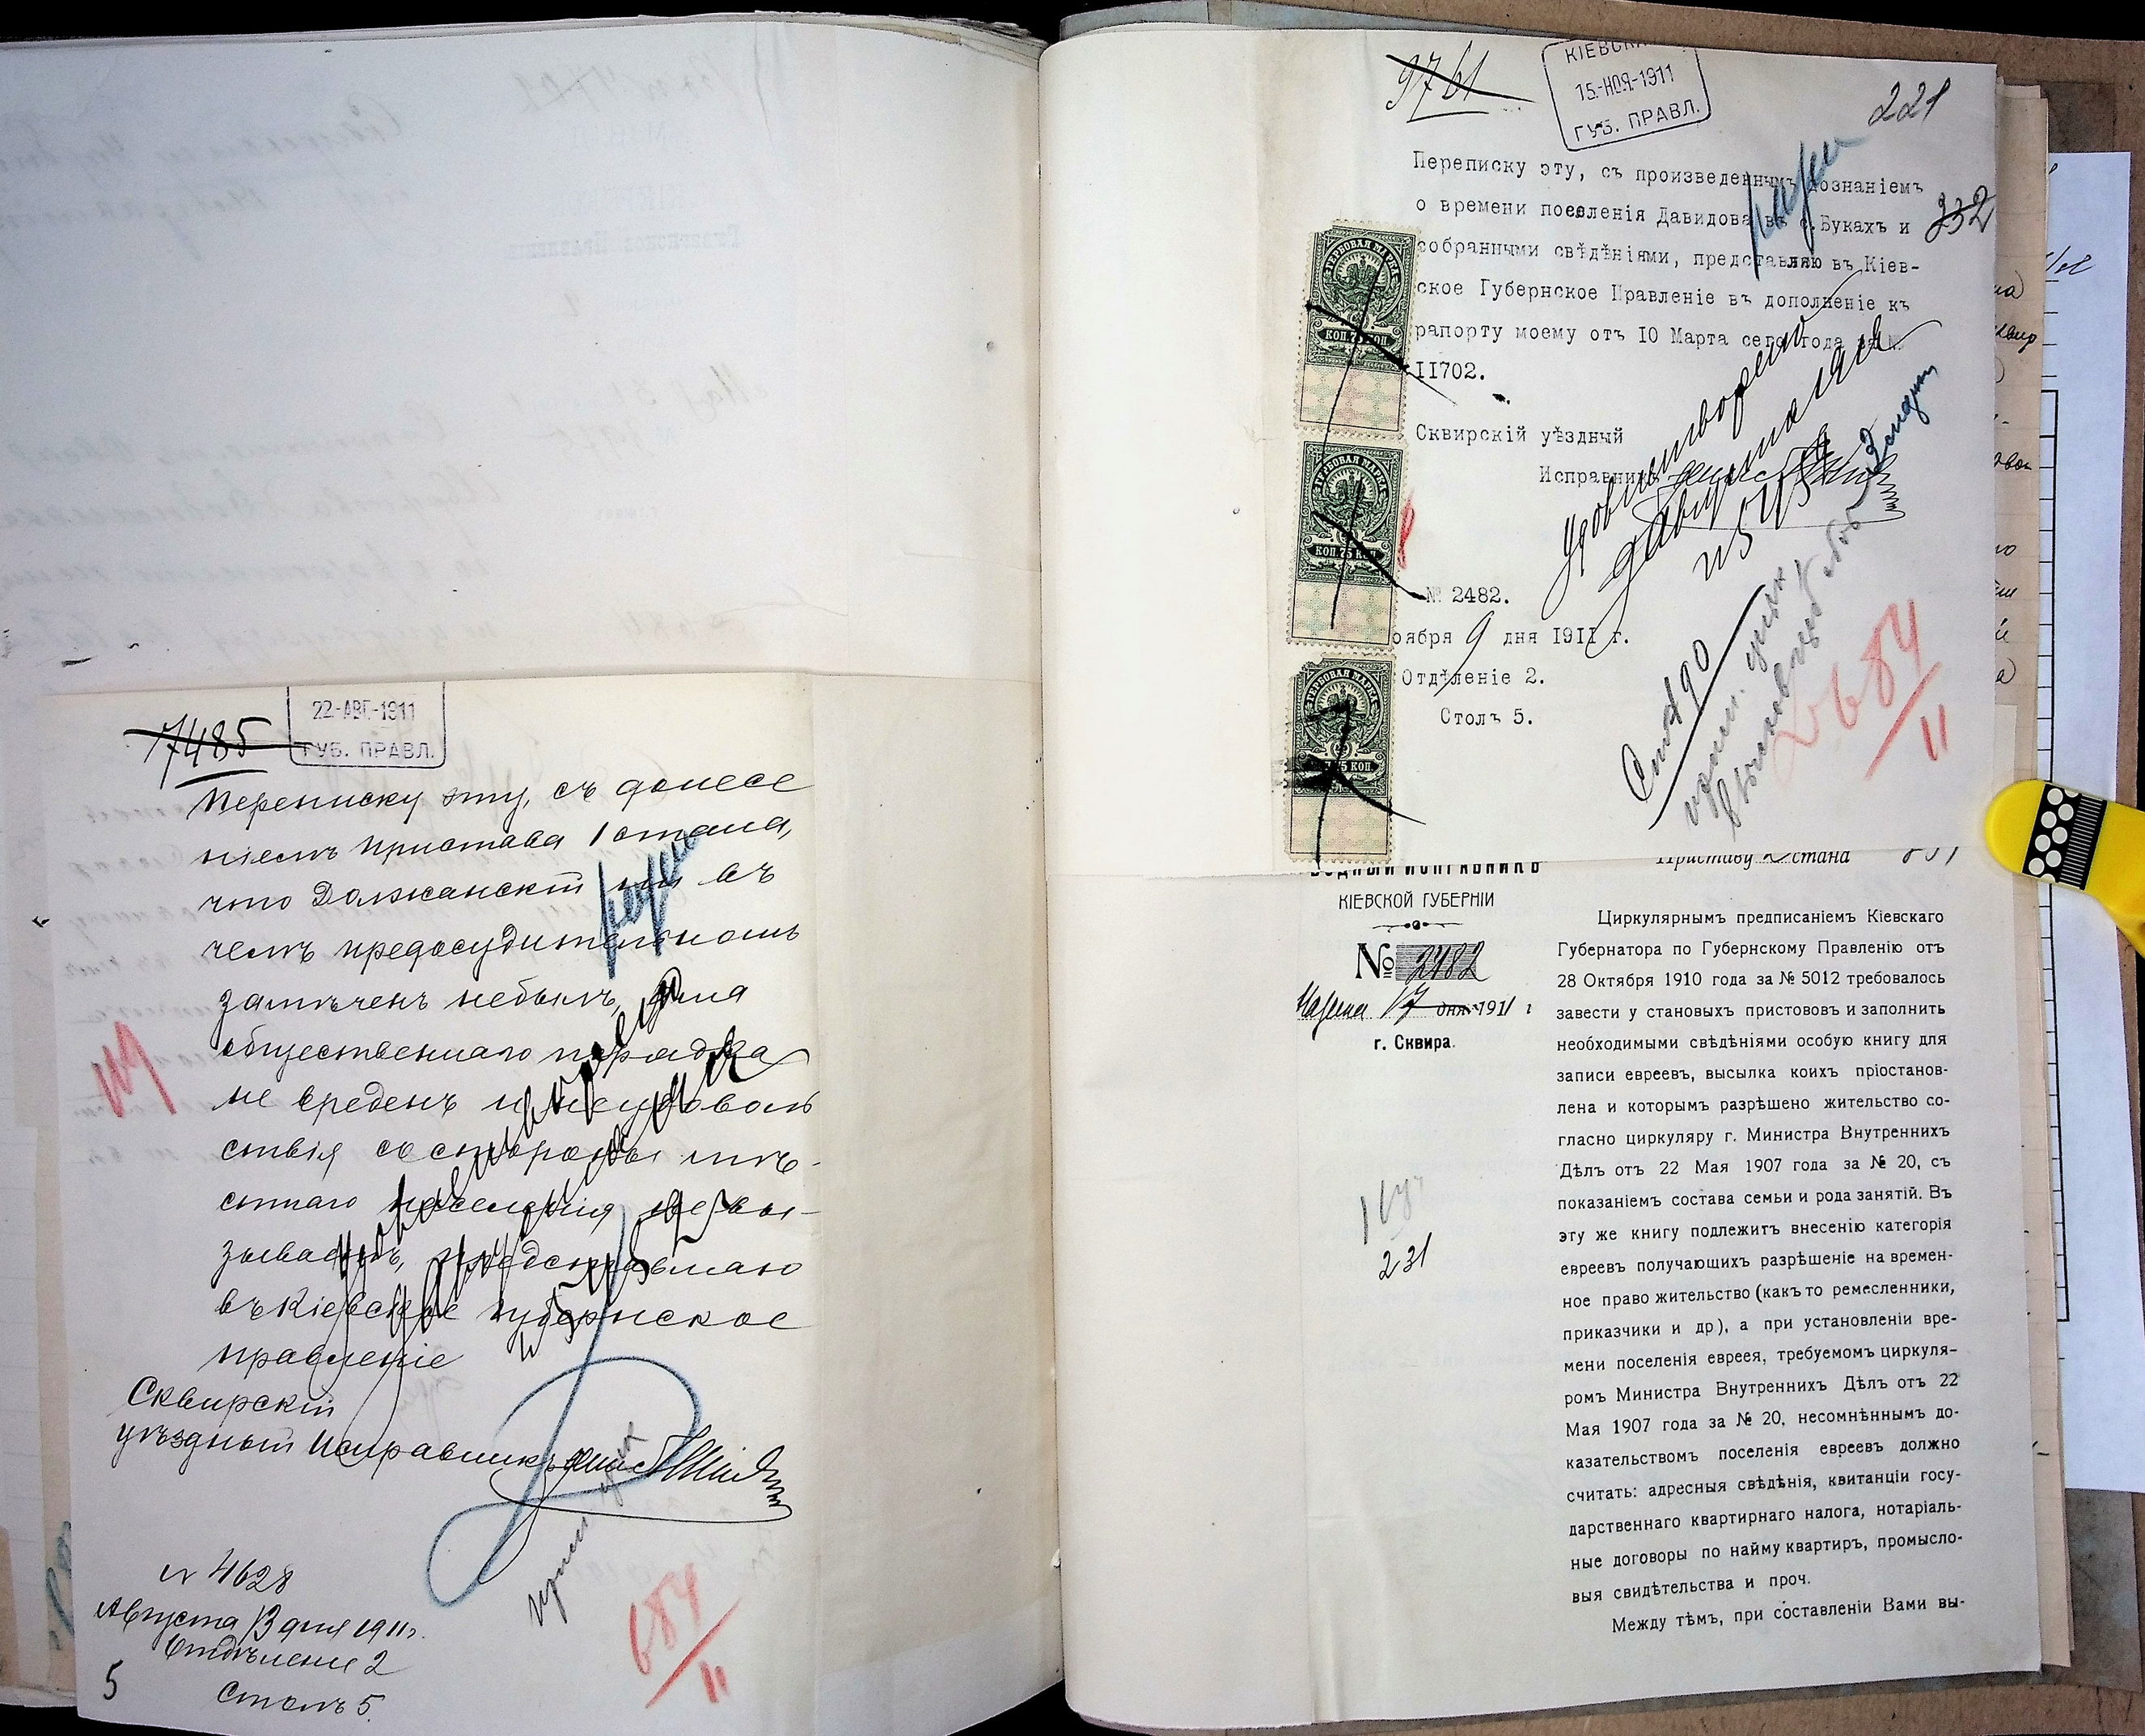 7485
22-АВГ-1911
ГУБ. ПРАВЛ.
Переписку эту, съ донесе
ніемъ Пристава 1 стана,
что Должанскій ни въ
чемъ предосудительномъ
замѣченъ небылъ, для
общественнаго порядка
не вреденъ и неудоволь
ствія со стороны мѣ-
стнаго населенія не вы-
зываетъ, представляю
въ Кіевское Губернское
Правленіе
Сквирскій
уѣздный Исправникъ
№ 4628
Августа 13 дня 1911 г.
Отдѣленіе 2
Столъ 5.
5
684/11
9761
КІЕВСК
15-НОЯ-1911
ГУБ. ПРАВЛ.
221
232
Переписку эту, съ произведеннымъ дознаніемъ
о времени поселенія Давидова въ с.Букахъ и
собранными свѣдѣніями, представляю въ Кіев-
ское Губернское Правленіе въ дополненіе къ
рапорту моему отъ 10 Марта сего года за №
11702.
Сквирскій уѣздный
Исправникъ
№ 2482.
оября 9 дня 1911 г.
Отдѣленіе 2.
Столъ 5.
ГЕРБОВАЯ МАРКА
КОП.75 КОП.
ГЕРБОВАЯ МАРКА
КОП.75 КОП.
ГЕРБОВАЯ МАРКА
75 КОП.
удовлетворенію
684/11
ѢЗДНЫЙ ИСПРАВНИКЪ
КІЕВСКОЙ ГУБЕРНІИ
№ 2482
Марта 17 дня 1911 г
г. Сквира.
231
Приставу 2 стана
Циркулярнымъ предписаніемъ Кіевскаго
Губернатора по Губернскому Правленію отъ
28 Октября 1910 года за № 5012 требовалось
завести у становыхъ пристововъ и заполнить
необходимыми свѣдѣніями особую книгу для
записи евреевъ, высылка коихъ пріостанов-
лена и которымъ разрѣшено жительство со-
гласно циркуляру г. Министра Внутреннихъ
Дѣлъ отъ 22 Мая 1907 года за № 20, съ
показаніемъ состава семьи и рода занятій. Въ
эту же книгу подлежитъ внесенію категорія
евреевъ получающихъ разрѣшеніе на времен-
ное право жительство (какъ то ремесленники,
приказчики и др), а при установленіи вре-
мени поселенія еврея, требуемомъ циркуля-
ромъ Министра Внутреннихъ Дѣлъ отъ 22
Мая 1907 года за № 20, несомнѣннымъ до-
казательствомъ поселенія евреевъ должно
считать: адресныя свѣдѣнія, квитанціи госу-
дарственнаго квартирнаго налога, нотаріаль-
ные договоры по найму квартиръ, промысло-
выя свидѣтельства и проч.
Между тѣмъ, при составленіи Вами вы-